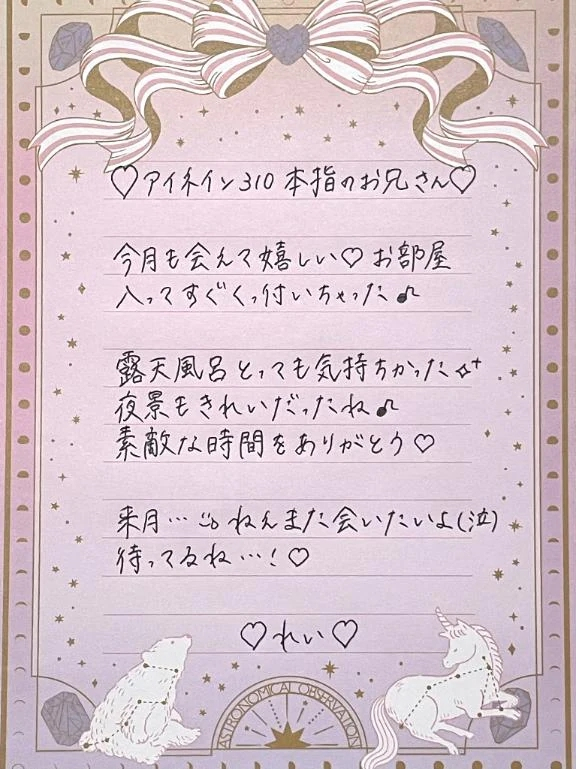 ♡アイネイン310 本指のお兄さん♡
今月も会えて嬉しい♡ お部屋
入ってすぐくっ付いちゃった♪
露天風呂とっても気持ちかった✧⁺
夜景もきれいだったね♪
素敵な時間をありがとう♡
来月… ねんまた会いたいよ(泣)
待ってるね…！♡
♡れい♡
ASTRONOMICAL OBSERVATION